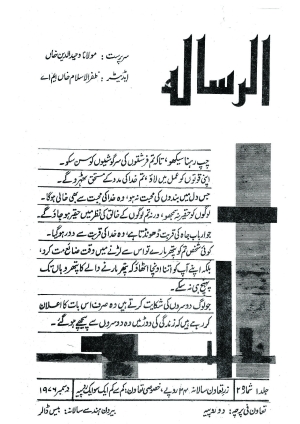 الرسالہ
سرپرست : مولانا وحید الدین خاں
ایڈیٹر : ظفر الاسلام خاں ایم اے
چپ رہنا سیکھو، تاکہ تم فرشتوں کی سرگوشیوں کو سن سکو۔
اپنی قوتوں کو عمل میں لاؤ، تم خدا کی مدد کے مستحق ٹھہرو گے۔
جس دل میں بندوں کی محبت نہ ہو، وہ خدا کی محبت سے بھی خالی ہوگا۔
لوگوں کو حقیر نہ سمجھو، ورنہ تم لوگوں کے خالق کی نظر میں حقیر ہو جاؤ گے۔
جو ارباب جاہ کی قربت ڈھونڈتا ہے، وہ خدا کی قربت سے دور ہوگیا۔
کوئی شخص تم کو پتھر مارے تو اس سے لڑنے میں وقت ضائع مت کرو،
بلکہ اپنے آپ کو اتنا اونچا اٹھاؤ کہ پتھر مارنے والے کا پتھر وہاں تک
پہنچ ہی نہ سکے۔
جو لوگ دوسروں کی شکایت کرتے ہیں وہ صرف اس بات کا اعلان
کر رہے ہیں کہ زندگی کی دوڑ میں وہ دوسروں سے پیچھے ہوگئے۔
جلد ۱ شمارہ ۲ زر تعاون سالانہ ۲۴ روپے، خصوصی تعاون: کم سے کم ایک سو ایک روپیہ دسمبر ۱۹۷۶
تعاون فی پرچہ: دو روپیہ بیرون ہند سے سالانہ: بیس ڈالر